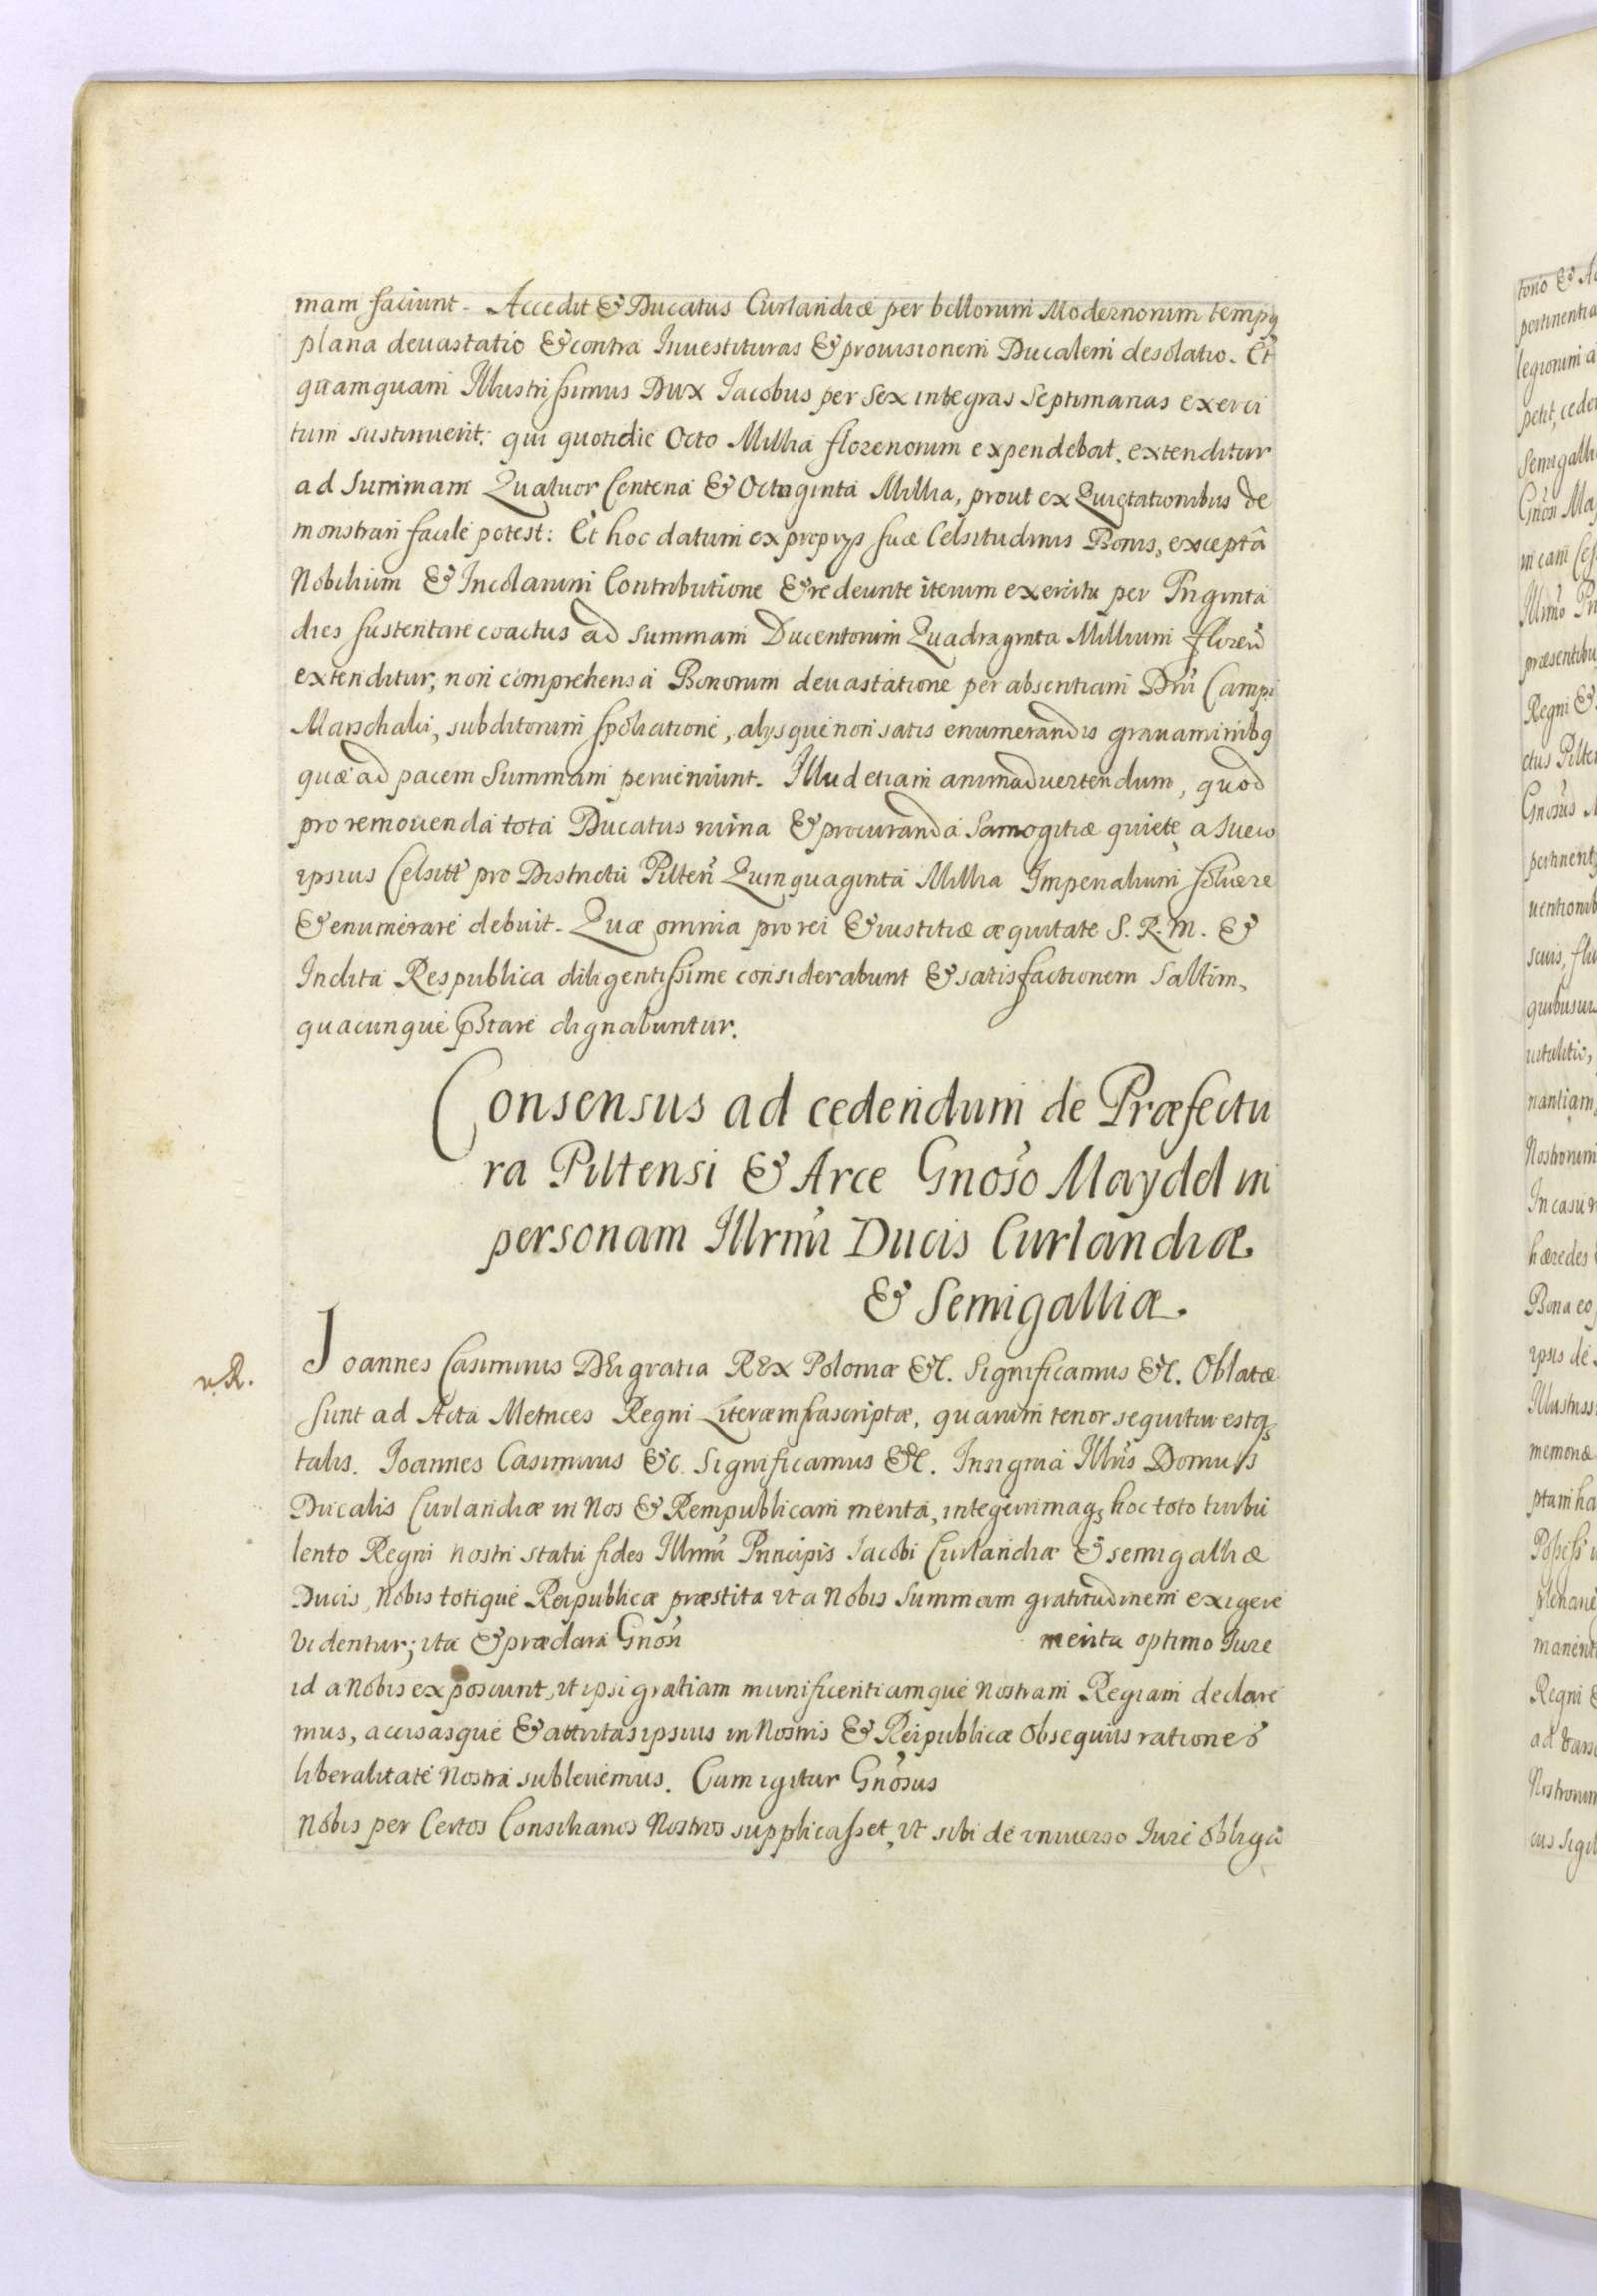 mam faciunt. Accedit & Ducatus Curlandiæ per bellorum Modernorum tempg
plana deuastatio & contra Inuestituras & prouisionem Ducalem desolatio. Et
quamquam Illustrissimus Dux Iacobus per sex integras Septimanas exerci
tum sustinuerit: qui quotidie Octo Millia florenorum expendebat, extenditur
ad Summam Quatuor Centena & Octoginta Millia, prout ex Quietationibus de
monstrari facile potest: Et hoc datum ex proprys suæ Celsitudinis Bonis, exceptâ
Nobilium & Incolarum Contributione & redeunte iterum exercitu per Triginta
dies sustentare coactus ad summam Ducentorum Quadraginta Millium floren̄
extenditur, non comprehensa Bonorum deuastatione per absentiam Dn̄i Campi
Marschalci, subditorum spoliatione, alysque non satis enumerandis grauaminibg
quæ ad pacem Summam perueniunt. Illud etiam animaduertendum, quod
pro remouenda tota Ducatus ruina & procuranda Samogitiæ quiete, a Sueco
ipsius Celsitt̄ pro Districtu Pilten̄ Quinquaginta Millia Imperialium soluere
& enumerare debuit. Quæ omnia pro rei & iustitiæ æquitate S. R. M. &
Inclita Respublica diligentissime considerabunt & satisfactionem Saltim,
quacunque p̄stare dignabuntur.
Consensus ad cedendum de Præfectu
ra Piltensi & Arce Gnoso Maydel in
personam Illrmi Ducis Curlandiæ
& Semigalliæ.
v. R.
Ioannes Casimirus DEi gratia REX Poloniæ &c. Significamus &c. Oblatæ
sunt ad Acta Metrices Regni Literæ infrascriptæ, quarum tenor sequitur estq;
talis. Ioannes Casimirus &c. Significamus &c. Insignia Illris Domus
Ducalis Curlandiæ in Nos & Rempublicam merita, integerrimaq; hoc toto turbu
lento Regni nostri statu fides Illrmi Principis Iacobi Curlandiæ & Semigalliæ
Ducis, Nobis totique Reipublicæ præstita ut a Nobis summam gratitudinem exigere
videntur; ita & præclara Gnosi merita optimo Iure
id a Nobis exposcunt, ut ipsi gratiam munificentiamque Nostram Regiam declare
mus, accisasque & attritas ipsius in Nostris & Reipublicæ Obsequiis rationes
liberalitate Nostra subleuemus. Cum igitur Gnosus
Nobis per Certos Consiliarios Nostros supplicasset, ut sibi de uniuerso Iure obliga